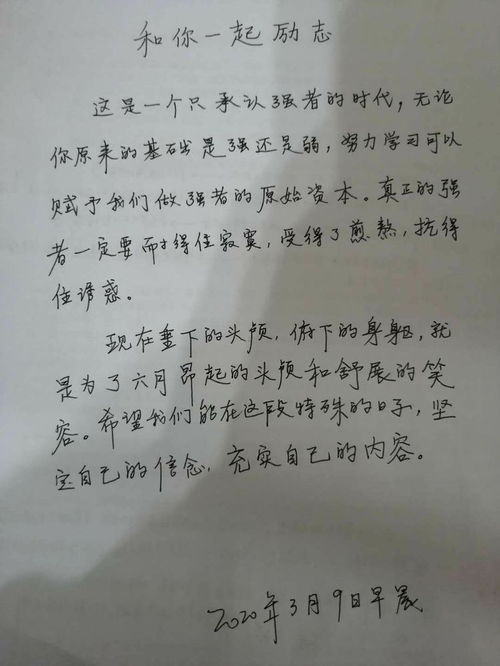 和你一起励志
这是一个只承认强者的时代，无论
你原来的基础是强还是弱，努力学习可以
赋予我们做强者的原始资本。真正的强
者一定要耐得住寂寞，受得了煎熬，抗得
住诱惑。
现在垂下的头颅，俯下的身躯，就
是为了六月昂起的头颅和舒展的笑
容。希望我们能在这段特殊的日子，坚
定自己的信念，充实自己的内容。
2020年3月9日早晨